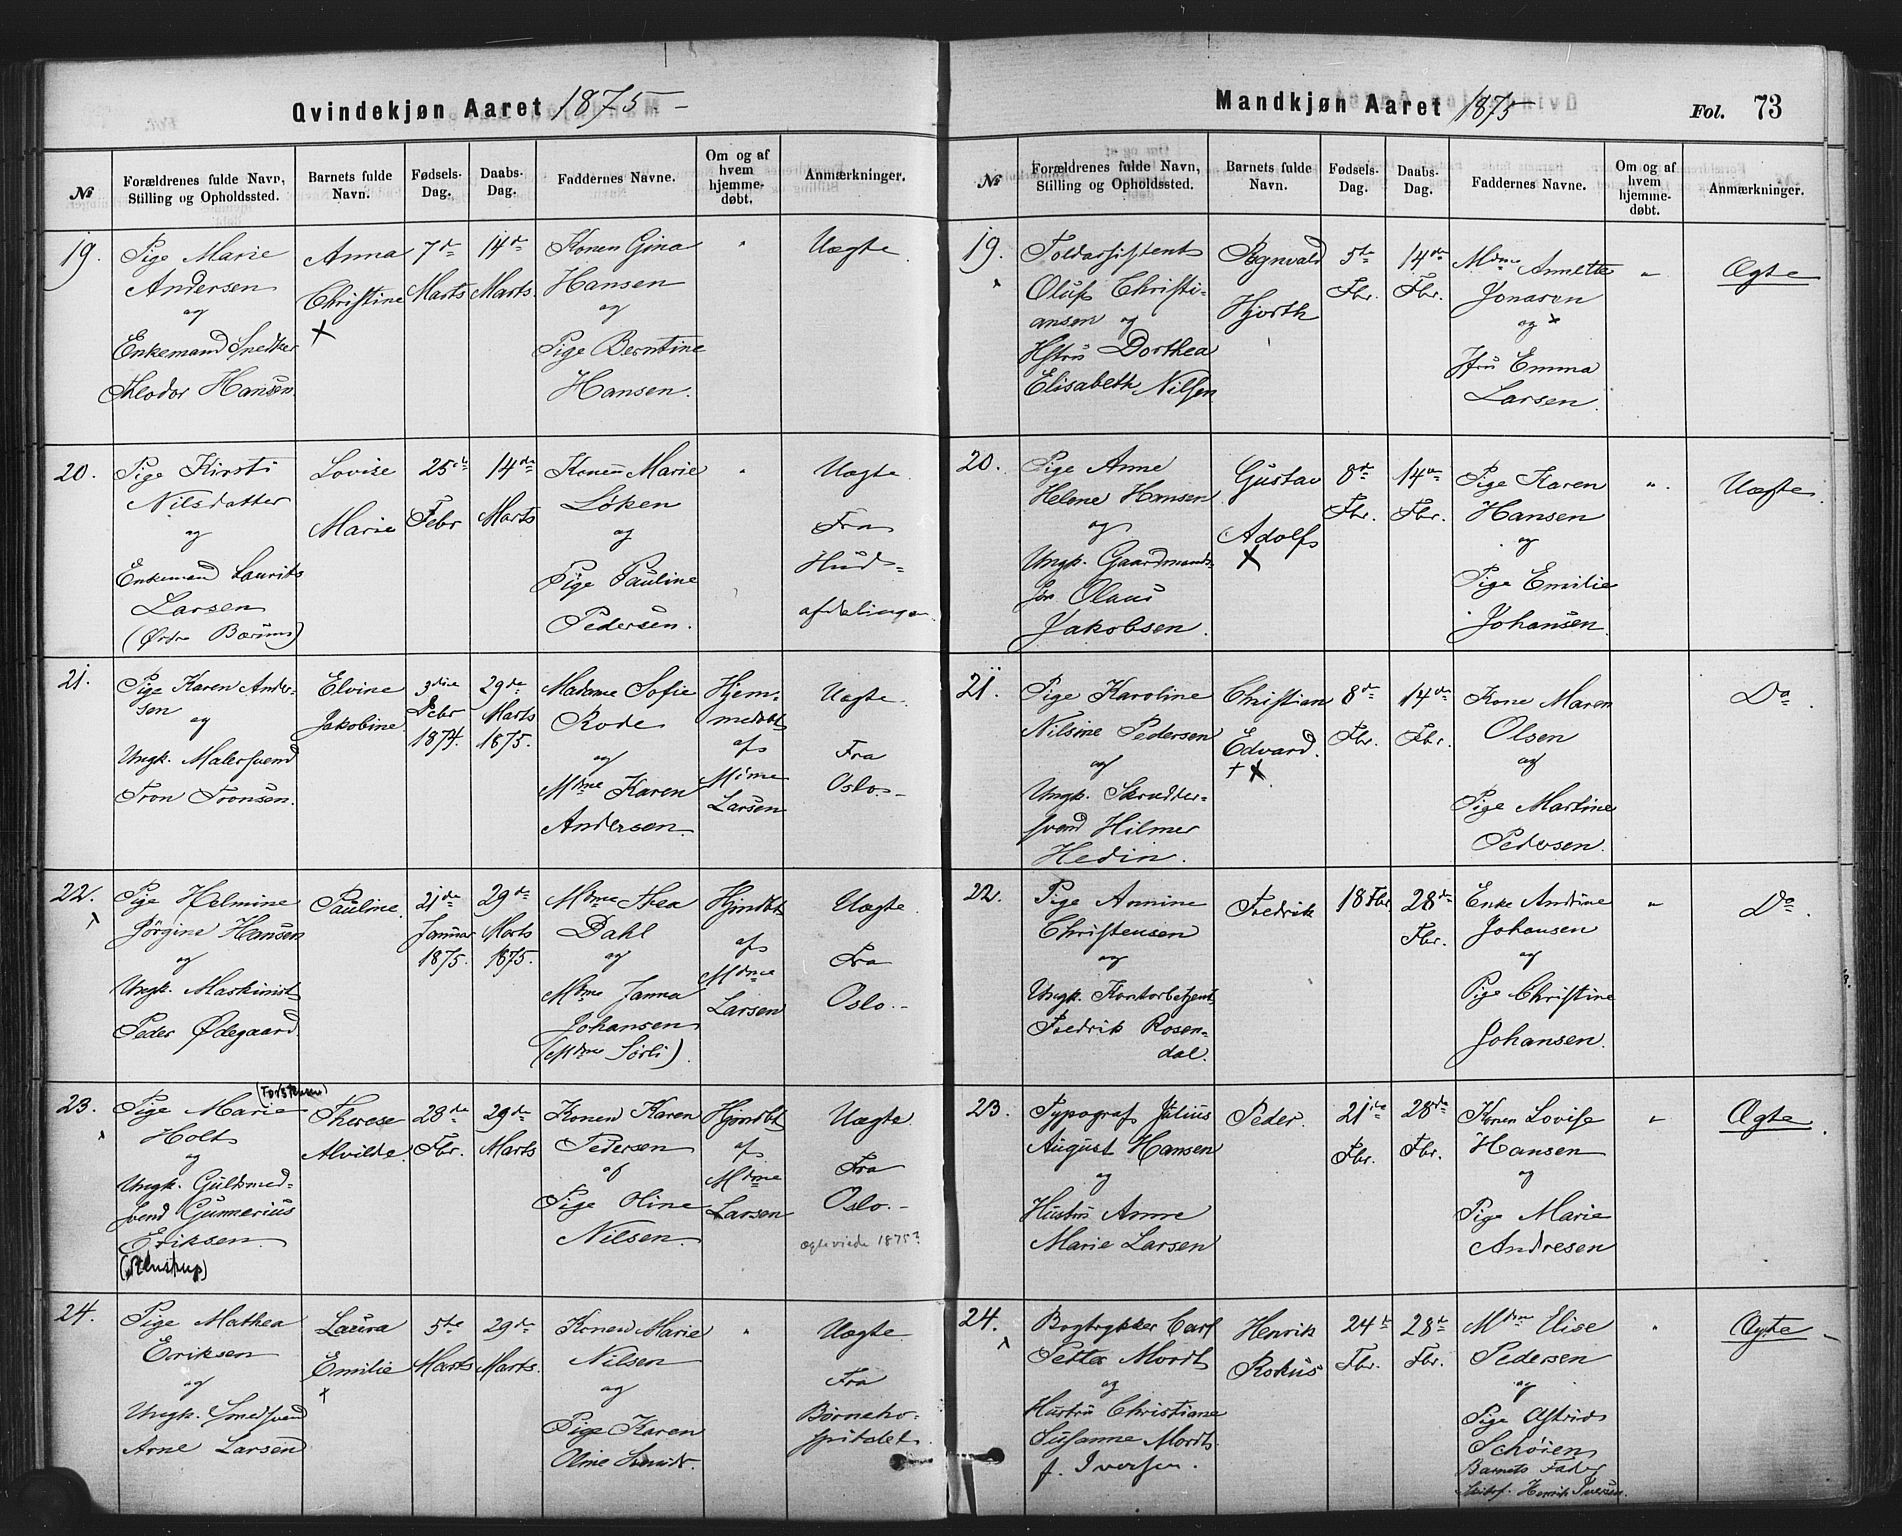 Qvindekjøn Aaret 1875-
№
Forældrenes fulde Navn,
Stilling og Opholdssted.
Barnets fulde
Navn.
Fødsels-
Dag.
Daabs-
Dag.
Faddernes Navne.
Om og af
hvem
hjemme-
døbt.
Anmærkninger.
19.
Pige Marie
Andersen
og
Enkemand Snedker
Theodor Hansen.
Anna
Christine
7de
Marts
14de
Marts.
Konen Gina
Hansen
og
Pige Berntine
Hansen.
"
Uægte
20.
Pige Kirsti
Nilsdatter
og
Enkemand Laurits
Larsen
(Østre Bærum)
Lovise
Marie
25de
Febr
14de
Marts
Konen Marie
Løken
og
Pige Pauline
Pedersen.
"
Uægte.
Fra
Hud-
afdelingen.
21.
Pige Karen Ander-
sen
og
Ungk. Malersvend
Tron Tronsen.
Elvine
Jakobine.
3die
Debr
1874.
29de
Marts
1875.
Madame Sofie
Rode
og
Mdme Karen
Andersen.
Hjem-
medøbt
af
Mdme
Larsen
Uægte.
Fra
Oslo.-
22.
Pige Helmine
Jørgine Hansen
og
Ungk. Maskinist
Peder Ødegaard.
Pauline.
21de
Januar
1875.
29de
Marts
1875.
Mdme Thea
Dahl
og
Mdme Janna
Johansen
(Mdme Sørli).
Hjmdbt
af
Mdme
Larsen
Uægte.
Fra
Oslo.-
23.
(Torstensen)
Pige Marie
Holt
og
Ungk. Guldsmed-
svend Gunnerius
Eriksen.
Therese
Alvilde.
28de
Fbr.
29de
Marts
Konen Karen
Pedersen
og
Pige Oline
Nilsen.
Hjmdbt
af
Mdme
Larsen
Uægte.
Fra
Oslo.-
Ægteviede 1875?
24.
Pige Mathea
Eriksen
og
Ungk. Smedsvend
Arne Larsen
Laura
Emilie
5te
Marts
29de
Marts.
Konen Marie
Nilsen
og
Pige Karen
Oline
"
Uægte.
Fra
Børneho-
spitalet.
Mandkjøn Aaret 1875
Fol. 73
№
Forældrenes fulde Navn,
Stilling og Opholdssted.
Barnets fulde
Navn.
Fødsels-
Dag.
Daabs-
Dag.
Faddernes Navne.
Om og af
hvem
hjemme-
døbt.
Anmærkninger.
19.
Toldassistent
Oluf Christi-
ansen og
Hstru Dorthea
Elisabeth Nilsen.
Ragnvald
Hjorth
5te
Fbr.
14de
Fbr.
Mdme Annette
Jonasen
og
Jfru Emma
Larsen.
"
Ægte
20.
Pige Anne
Helene Hansen
og
Ungk. Gaardmands-
søn Olaus
Jakobsen.
Gustav
Adolf
8de
Fbr.
14de
Fbr.
Pige Karen
Hansen
og
Pige Emilie
Johansen.
"
Uægte.
21.
Pige Karoline
Nilsine Pedersen
og
Ungk. Skrædder-
svend Hilmer
Hedin.
Christian
Edvard.
8de
Fbr.
14de
Fbr.
Kone Maren
Olsen
og
Pige Martine
Pedersen.
Do.
22.
Pige Annine
Christensen
og
Ungk. Kontorbetjent
Fredrik Rosen-
dal.
Fredrik
18 Fbr.
28de
Fbr.
Enke Andrine
Johansen
og
Pige Christine
Johansen.
"
Do.
23.
Typograf Julius
August Hansen
og
Hustru Anne
Marie Larsen
Peder.
21de
Fbr.
28de
Fbr.
Konen Lovise
Hansen
og
Pige Marie
Andresen
"
Ægte.
24.
Bogtrykker Carl
Petter Mordt
og
Hustru Christiane
Susanne Mordt
f. Iversen.
Henrik
Rokus
24de
Fbr.
28de
Fbr.
Mdme Elise
Pedersen
og
Pige Astrid
Schøien
Barnets Fader
Henrik Iversen.
"
Ægte